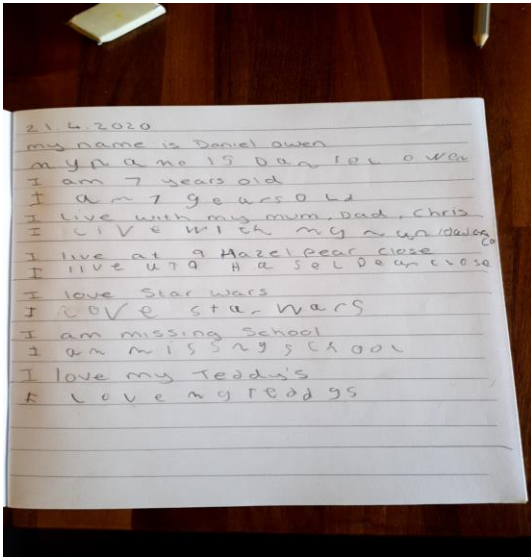 21.4.2020
my name is Daniel Owen
my name is Daniel Owen
I am 7 years old
I am 7 years old
I live with my mum, Dad, Chris
I live with my
I live at 9 Hazel Pear close
I live at 9 Hasel Pear close
I love Star Wars
I love star wars
I am missing School
I am missng school
I love my Teddy's
I love my teddys